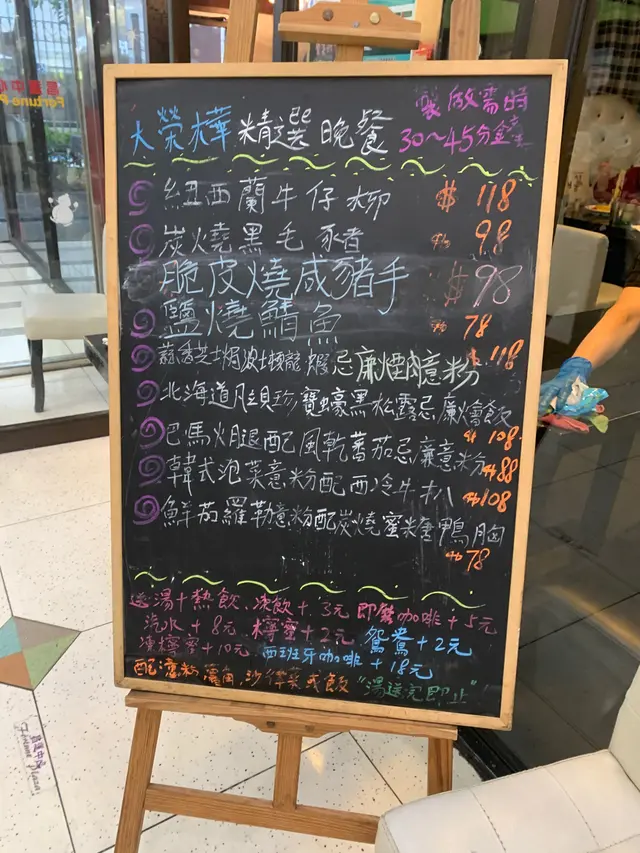 大榮華 精選晚餐
製做需時
30~45分鐘
紐西蘭牛仔柳 $118
炭燒黑毛豬 $98
脆皮燒咸豬手 $98
鹽燒鯖魚 $78
蒜香芝士焗波士頓龍蝦忌廉煙肉意粉 $118
北海道帶子珍寶蠔黑松露忌廉燴飯 $108
巴馬火腿配風乾蕃茄忌廉意粉 $88
韓式泡菜意粉配西冷牛扒 $108
鮮茄羅勒意粉配炭燒蜜糖鴨胸 $78
送湯+熱飲、凍飲+3元 即磨咖啡+5元
汽水+8元 檸蜜+2元 鴛鴦+2元
凍檸蜜+10元 西班牙咖啡+18元
配意粉、薯角、沙律菜或飯 "湯送完即止"
Fortune P